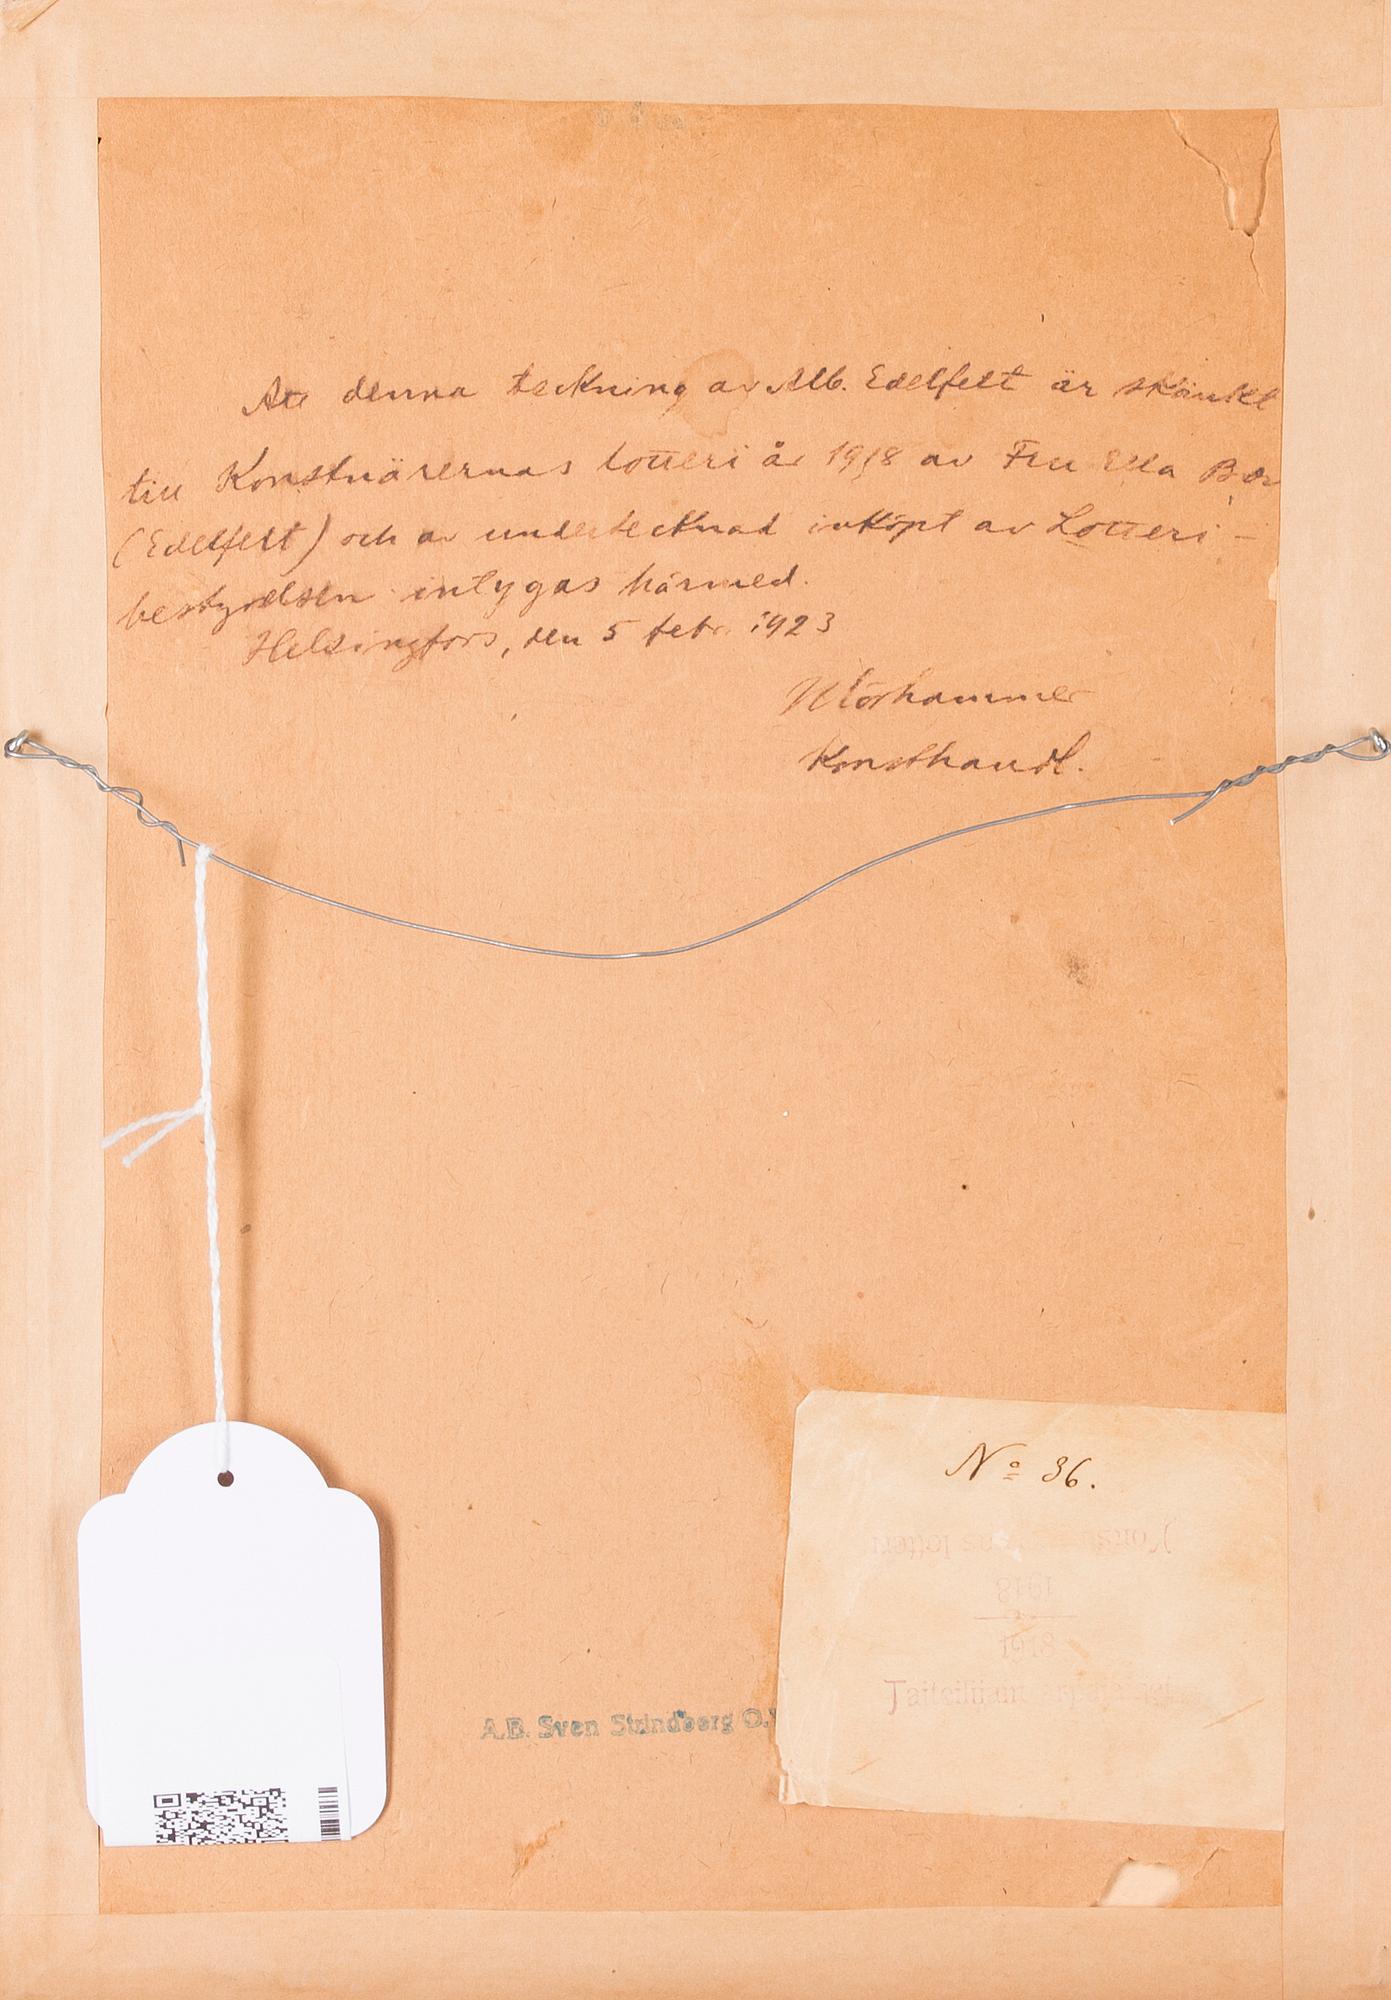 Att denna teckning av Alb. Edelfelt är skänkt
till Konstnärernas lotteri år 1918 av Fru Ella
(Edelfelt) och av undertecknad inköpt av Lotteri-
bestyrelsen intygas härmed.
Helsingfors, den 5 febr. 1923
Konsthandl.
No 36.
lotteri
1918
1918
A.B. Sven Strindberg O.